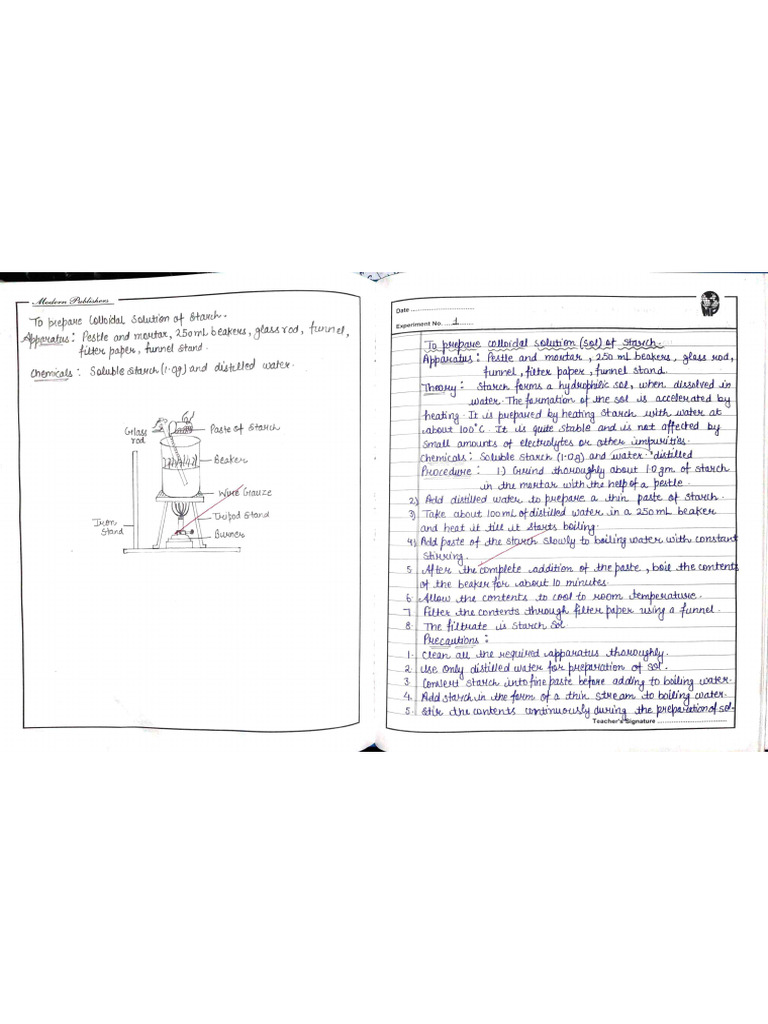 Modern Publishers
To prepare Colloidal Solution of Starch.
Apparatus : Pestle and mortar, 250mL beakers, glass rod, funnel,
filter paper, funnel stand.
Chemicals : Soluble starch (1.0g) and distilled water.
Glass rod
Paste of Starch
Beaker
Wire Gauze
Tripod Stand
Iron Stand
Burner
MP
Date
Experiment No. 1
To prepare colloidal solution (sol) of starch.
Apparatus : Pestle and mortar, 250 mL beakers, glass rod,
funnel, filter paper, funnel stand.
Theory : Starch forms a hydrophilic sol, when dissolved in
water. The formation of the sol is accelerated by
heating. It is prepared by heating starch with water at
about 100°C. It is quite stable and is not affected by
small amounts of electrolytes or other impurities.
Chemicals : Soluble starch (1.0g) and water. distilled
Procedure : 1) Grind thoroughly about 1.0gm of starch
in the mortar with the help of a pestle.
2) Add distilled water to prepare a thin paste of starch.
3) Take about 100mL of distilled water in a 250mL beaker
and heat it till it starts boiling.
4) Add paste of the starch slowly to boiling water with constant
stirring.
5. After the complete addition of the paste, boil the contents
of the beaker for about 10 minutes.
6. Allow the contents to cool to room temperature.
7. Filter the contents through filter paper using a funnel.
8. The filtrate is starch sol.
Precautions :
1. Clean all the required apparatus thoroughly.
2. Use only distilled water for preparation of sol.
3. Convert starch into fine paste before adding to boiling water.
4. Add starch in the form of a thin stream to boiling water.
5. Stir the contents continuously during the preparation of sol.
Teacher's Signature